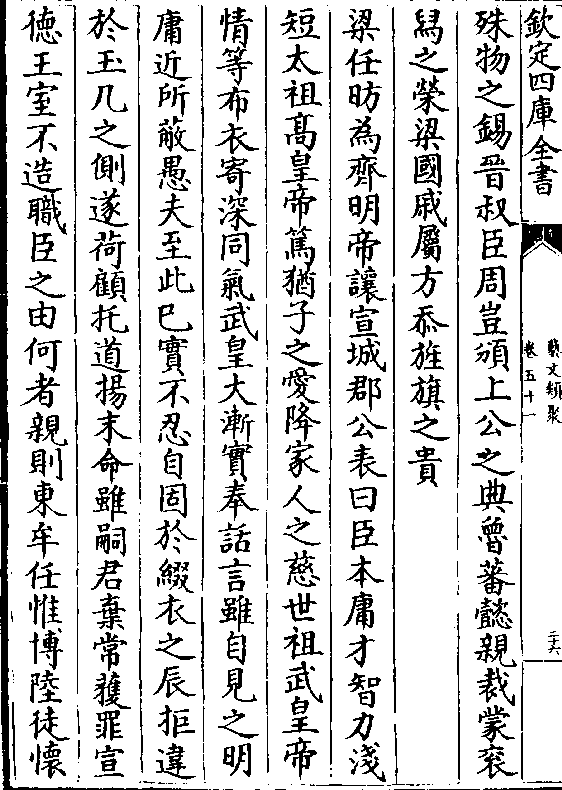 欽定四庫全書
藝文類聚
卷五十一
二十六
殊物之錫晉叔臣周豈頒上公之典曾蕃懿親裁蒙衮
舄之榮梁國戚屬方忝旌旗之貴
梁任昉為齊明帝讓宣城郡公表曰臣本庸才智力淺
短太祖髙皇帝篤猶子之愛降家人之慈世祖武皇帝
情等布衣寄深同氣武皇大漸實奉話言雖自見之明
庸近所蔽愚夫至此已實不忍自固於綴衣之辰拒違
於玉几之側遂荷顧托道揚末命雖嗣君棄常獲罪宣
德王室不造職臣之由何者親則東牟任惟博陸徒懐